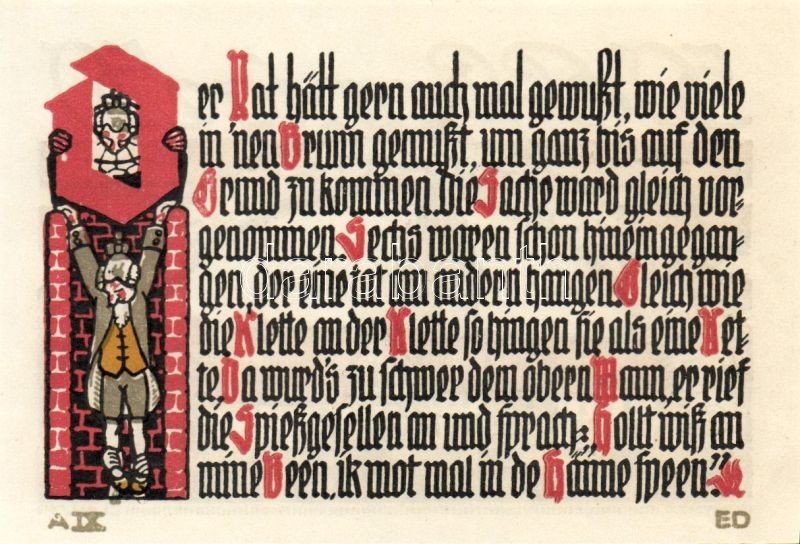 Der Rat hätt gern auch mal gewußt, wie viele
in 'nen Brunn gemußt, um ganz bis auf den
Grund zu kommen. Die Sache ward gleich vor-
genommen. Sechs waren schon hineingegan-
gen, der eine tat am andern hangen. Gleich wie
die Klette an der Klette so hingen sie als eine Ket-
te. Da wurd's zu schwer dem obern Mann, er rief
die Spießgesellen an und sprach: „Hollt wiß an
mine Been, ik mot mal in de Hänne speen."
A IX
ED
darabanth